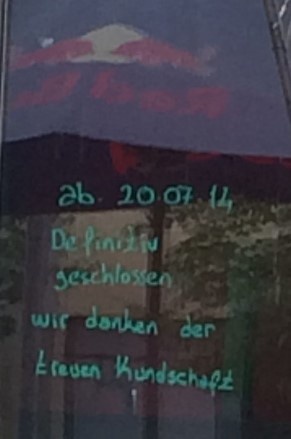 ab. 20.07.14
Definitiv
geschlossen
wir danken der
treuen Kundschaft